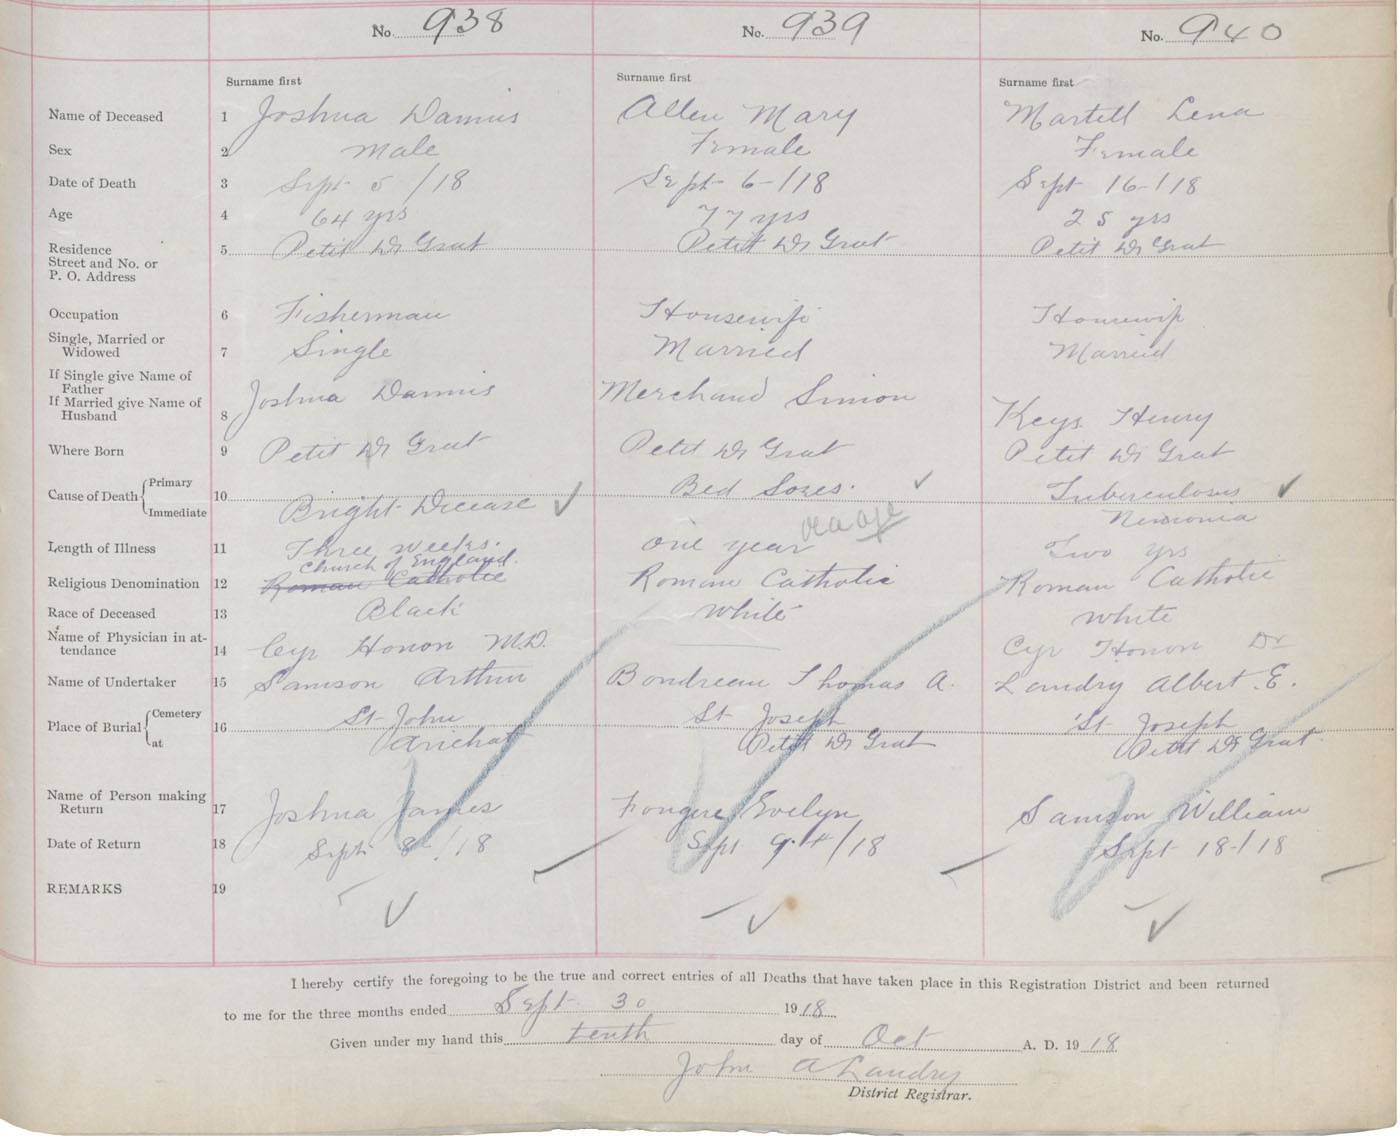 No. 938 No. 939 No. 940
Surname first Surname first Surname first
Name of Deceased 1 Joshua Dannis Allen Mary Martell Lena
Sex 2 Male Female Female
Date of Death 3 Sept 5-/18 Sept 6-/18 Sept 16-/18
Age 4 64 yrs 77 yrs 25 yrs
Residence
Street and No. or
P. O. Address
5 Petit Dr Grat Petit Dr Grat Petit Dr Grat
Occupation 6 Fisherman Housewife Housewife
Single, Married or
Widowed 7 Single Married Married
If Single give Name of
Father
If Married give Name of
Husband 8 Joshua Dannis Merchand Simon Keys Henry
Where Born 9 Petit Dr Grat Petit Dr Grat Petit Dr Grat
Cause of Death Primary Immediate 10 Bright Decease Bed Sores. Tuberculosis
Nemonia
old age
Length of Illness 11 Three weeks. one year Two yrs
Church of England.
Religious Denomination 12 Roman Catholic Roman Catholic Roman Catholic
Race of Deceased 13 Black White White
Name of Physician in at-
tendance 14 Cyr Honon M.D. Cyr Honon Dr
Name of Undertaker 15 Samson Arthur Boudreau Thomas A. Landry Albert E.
Place of Burial Cemetery at 16 St John St Joseph St Joseph
Arichat Petit Dr Grat Petit Dr Grat
Name of Person making
Return 17 Joshua James Fougere Evelyn Samson William
Date of Return 18 Sept 8-/18 Sept 9.4/18 Sept 18-/18
REMARKS 19
I hereby certify the foregoing to be the true and correct entries of all Deaths that have taken place in this Registration District and been returned
to me for the three months ended Sept 30 1918
Given under my hand this tenth day of Oct A. D. 1918
John A Landry
District Registrar.